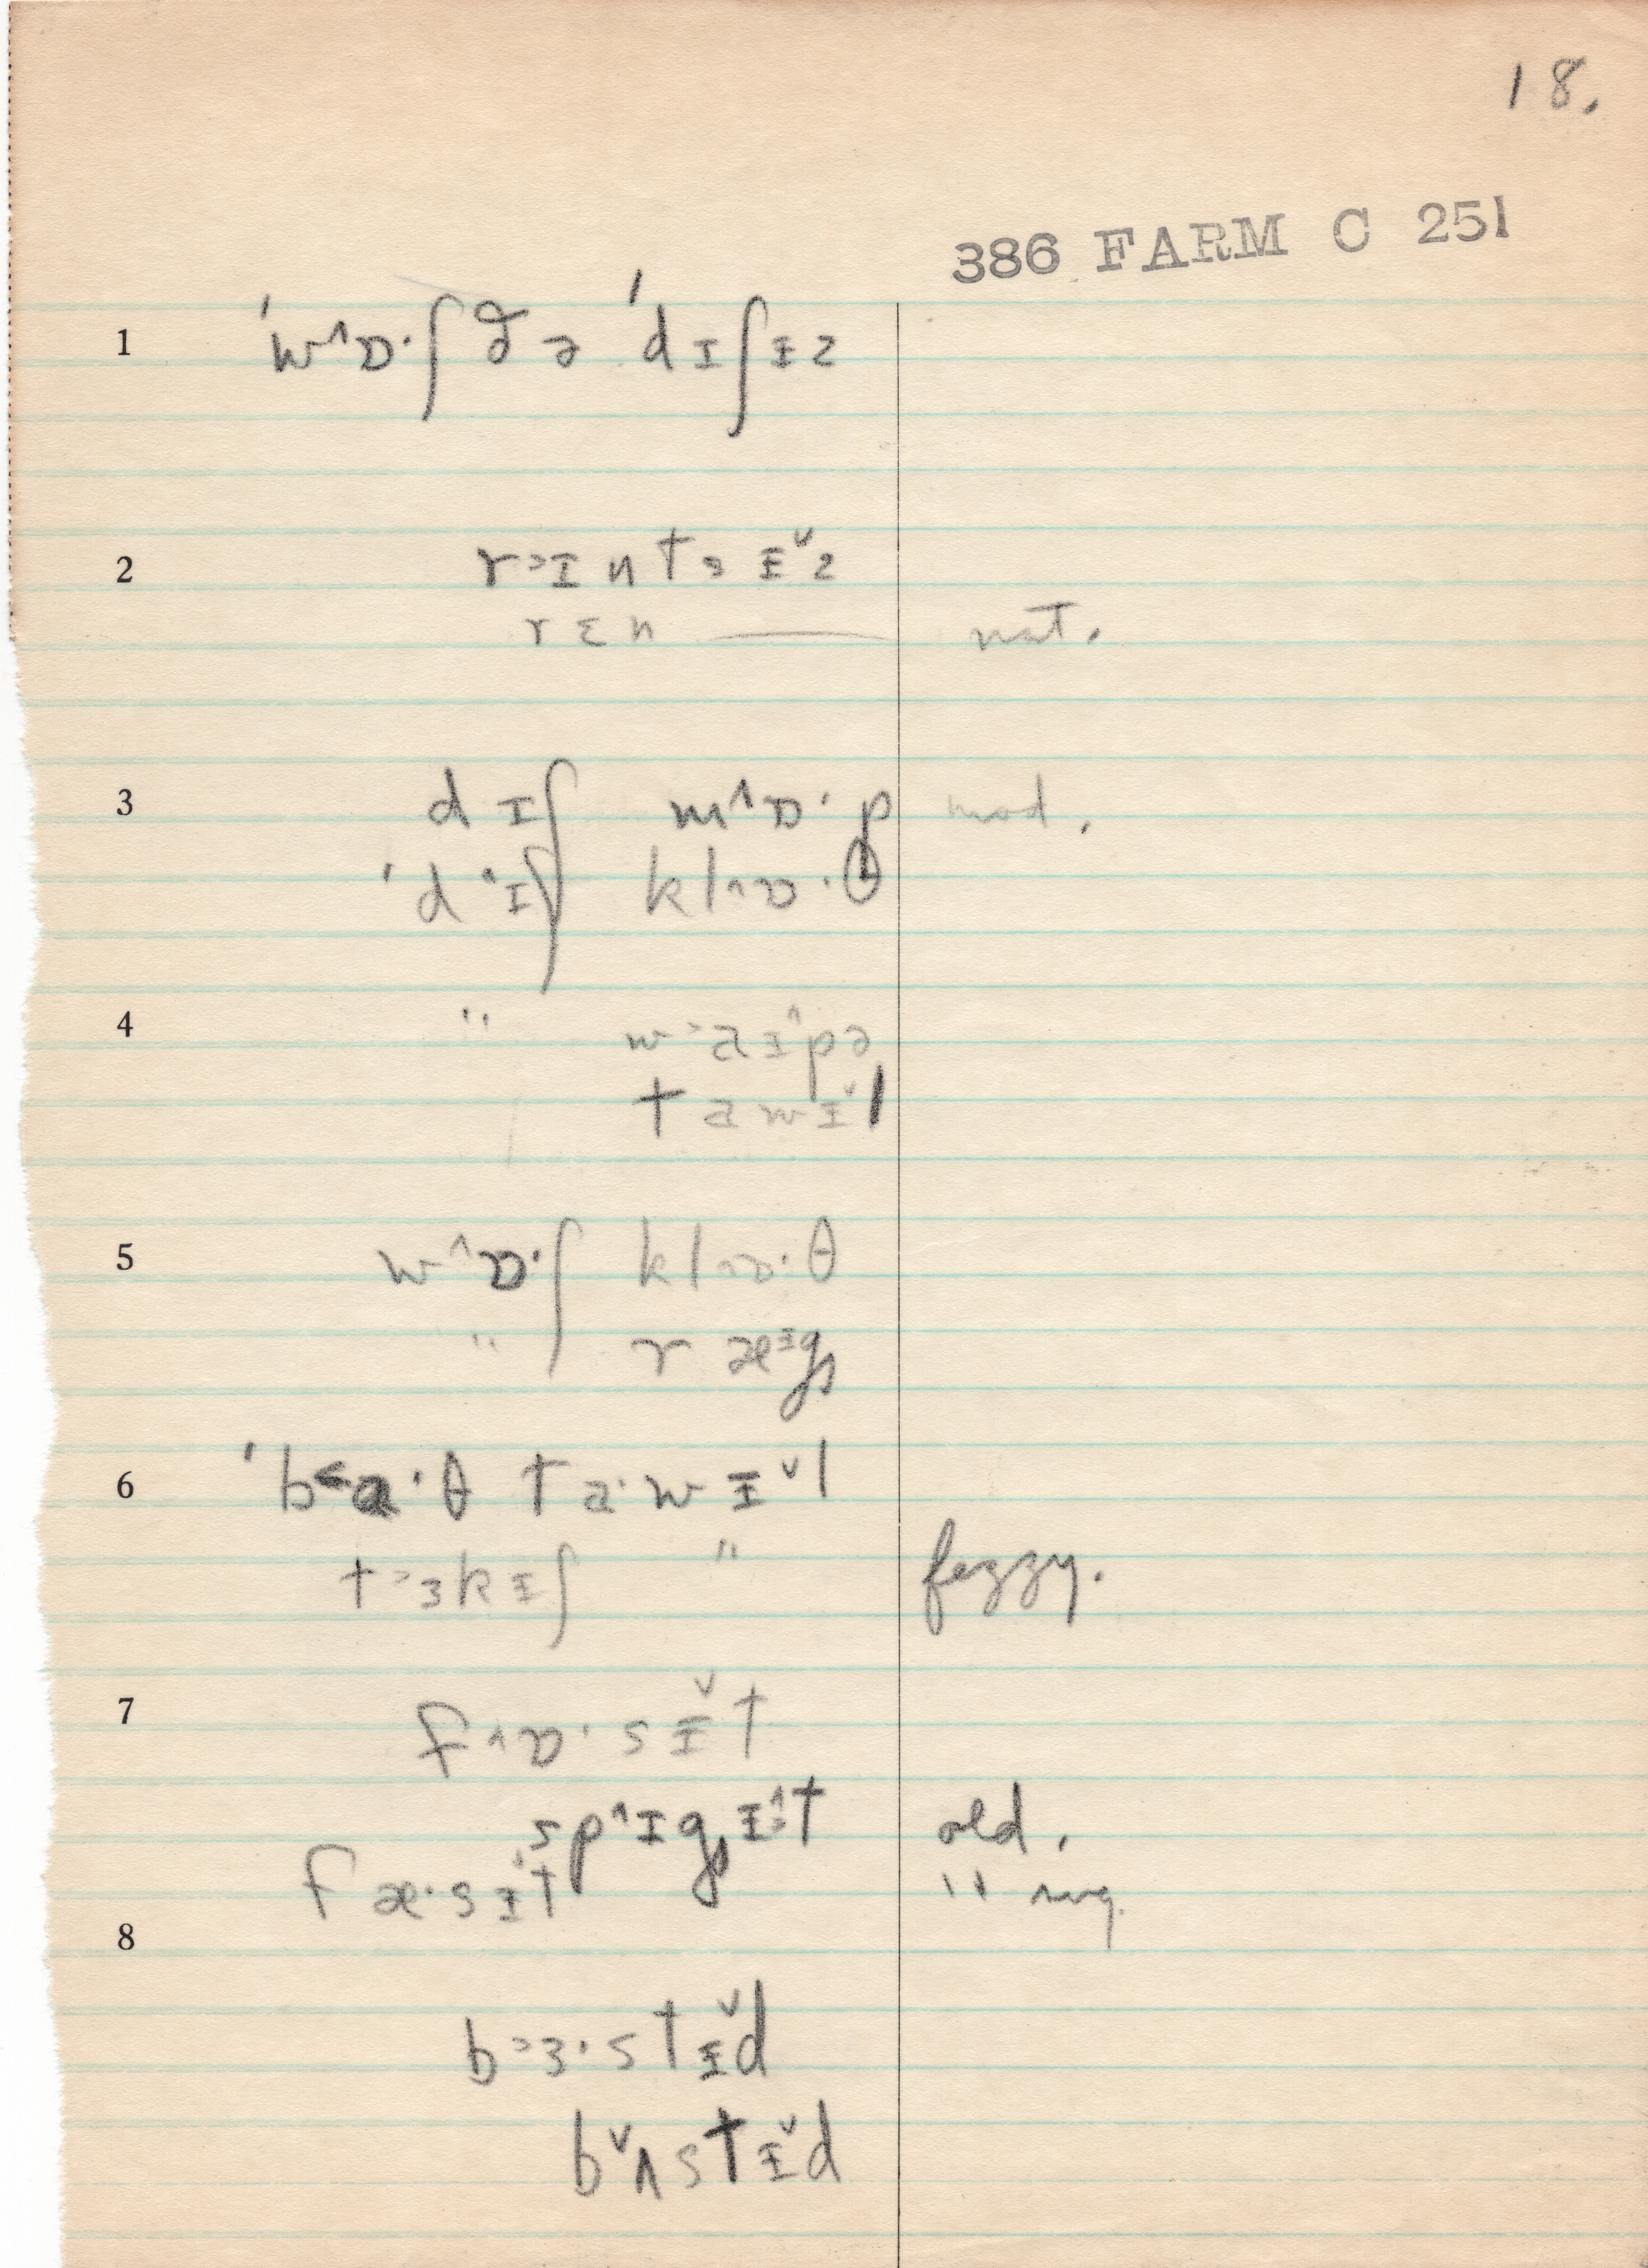 18.
386 FARM C 251
1 ˈw^ɒ·ʃ ð ə ˈd ɪ ʃ ɨ z
2 r ˃ɪ n t s ɨ ˅ z
r ɛ n —— nat.
3 d ɪ ʃ m^ɒ· p mod.
ˈd ·ɪ ʃ k l ^ɒ· θ
4 " w ˃a ɨ ^ p ə
t a w ɨ ˅ l
5 w^ɒ·ʃ k l ^ɒ· θ
" r æ ɨ g s
6 ˈb ˂a· θ t a· w ɨ ˅ l
t ˃ɜ k ɨ ʃ " fezzy.
7 f ^ɒ· s ɨ ˅ t
s p ^ɪ g ɨ ^ t old.
f æ· s ɨ t " sug.
8
b ˃ɜ· s t ɨ ˅ d
b ˅ʌ s t ɨ ˅ d